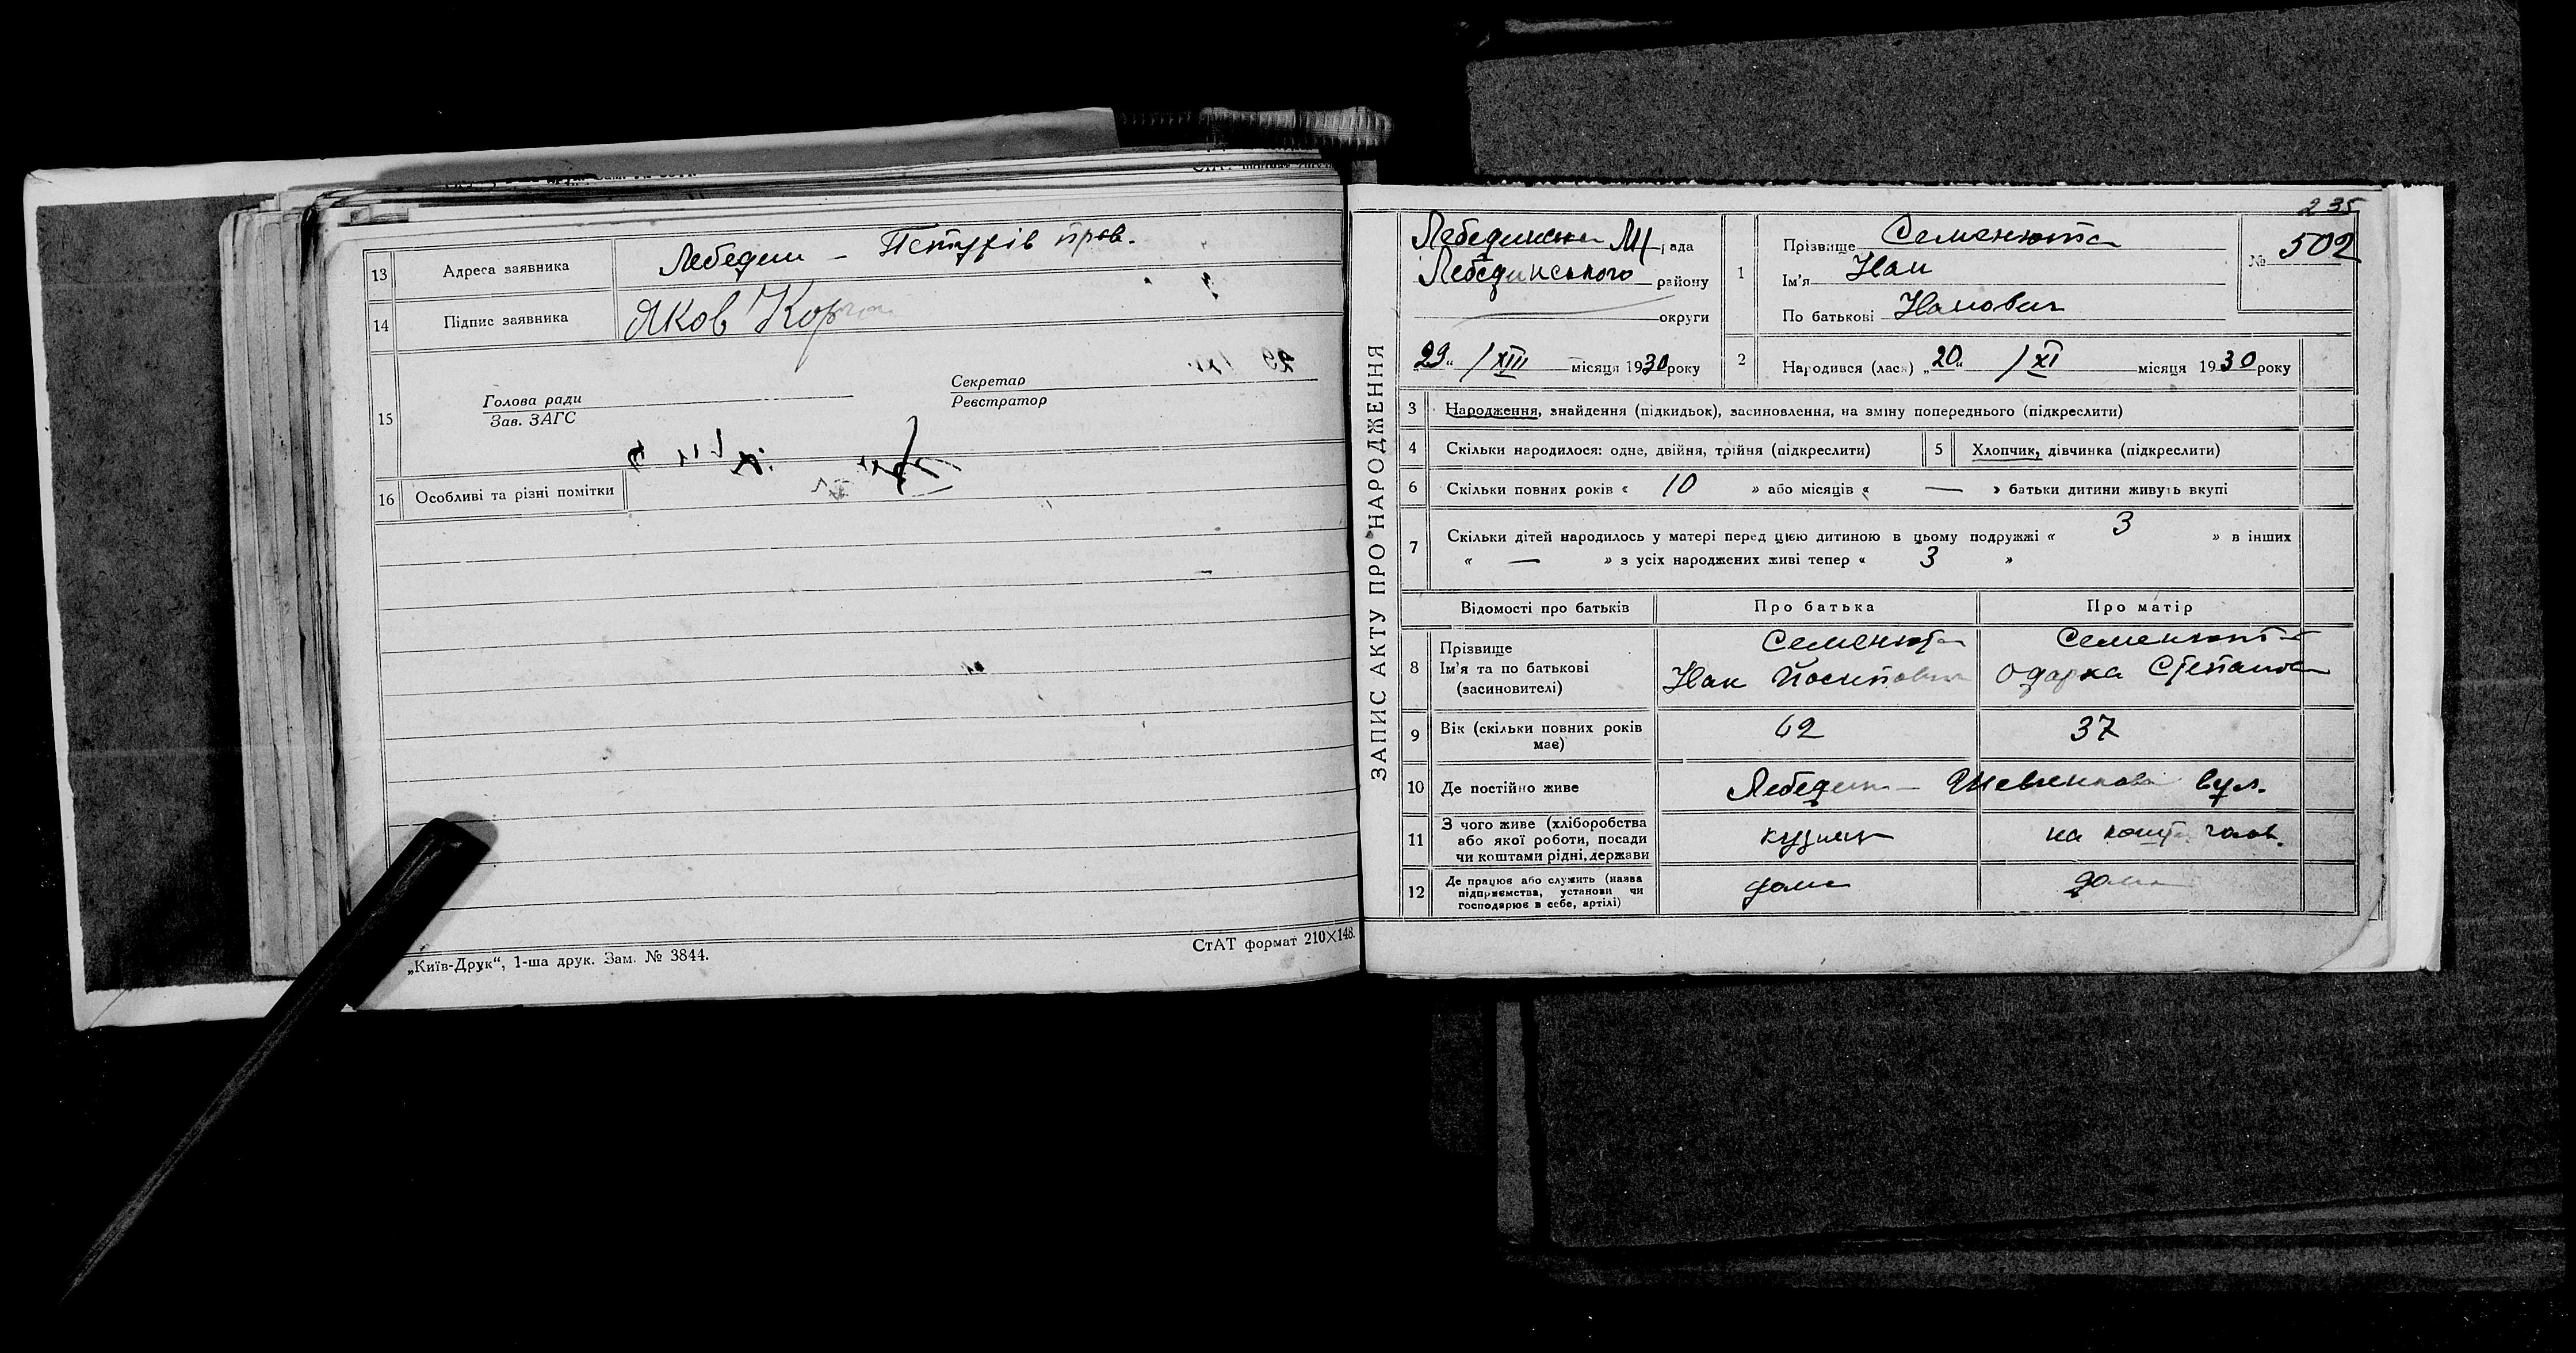 13 Адреса заявника Лебедин - Петухів пров.
14 Підпис заявника Яков
15 Голова ради
Зав. ЗАГС
Секретар
Реєстратор
16 Особливі та різні помітки
„Київ-Друк“, 1-ша друк. Зам. № 3844.
СтАТ формат 210×148.
235
ЗАПИС АКТУ ПРО НАРОДЖЕННЯ
Лебединська рада
Лебединського району
округи
29 /XII місяця 1930 року
1 Прізвище Семенюта
Ім'я Іван
По батькові Іванович
№ 502
2 Народився (лася) „20“ /XI місяця 1930 року
3 Народження, знайдення (підкидьок), засиновлення, на зміну попереднього (підкреслити)
4 Скільки народилося: одне, двійня, трійня (підкреслити)
5 Хлопчик, дівчинка (підкреслити)
6 Скільки повних років « 10 » або місяців « — » батьки дитини живуть вкупі
7 Скільки дітей народилось у матері перед цією дитиною в цьому подружжі « 3 » в інших
« — » з усіх народжених живі тепер « 3 »
Відомості про батьків Про батька Про матір
8 Прізвище Семенюта Семенюта
Ім'я та по батькові Іван Йосипович Одарка Степанов
(засиновителі)
9 Вік (скільки повних років має) 62 37
10 Де постійно живе Лебедин - Шевченкова вул.
11 З чого живе (хліборобства
або якої роботи, посади
чи коштами рідні, держави кузнец на кошти чолов.
12 Де працює або служить (назва
підприємства, установи чи
господарює в себе, артілі) дома дома